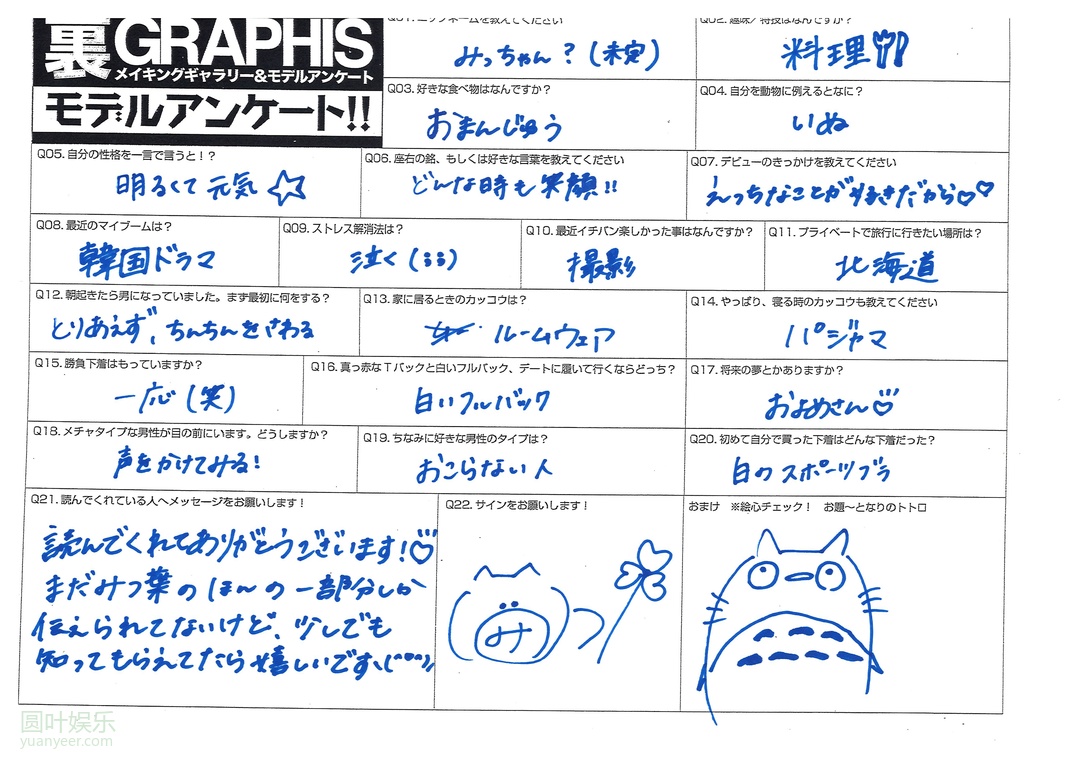 裏GRAPHIS
メイキングギャラリー&モデルアンケート
モデルアンケート!!
Q01.ニックネームを教えてください
みっちゃん?(未定)
Q02.趣味/特技はなんですか?
料理
Q03.好きな食べ物はなんですか?
おまんじゅう
Q04.自分を動物に例えるとなに?
いぬ
Q05.自分の性格を一言で言うと!?
明るくて元気☆
Q06.座右の銘、もしくは好きな言葉を教えてください
どんな時も笑顔!!
Q07.デビューのきっかけを教えてください
えっちなことが好きだから♡♡
Q08.最近のマイブームは?
韓国ドラマ
Q09.ストレス解消法は?
泣く(;;)
Q10.最近イチバン楽しかった事はなんですか?
撮影
Q11.プライベートで旅行に行きたい場所は?
北海道
Q12.朝起きたら男になっていました。まず最初に何をする?
とりあえず、ちんちんをさわる
Q13.家に居るときのカッコウは?
ルームウェア
Q14.やっぱり、寝る時のカッコウも教えてください
パジャマ
Q15.勝負下着はもっていますか?
一応(笑)
Q16.真っ赤なTバックと白いフルバック、デートに履いて行くならどっち?
白いフルバック
Q17.将来の夢とかありますか?
およめさん♡
Q18.メチャタイプな男性が目の前にいます。どうしますか?
声をかけてみる!
Q19.ちなみに好きな男性のタイプは?
おこらない人
Q20.初めて自分で買った下着はどんな下着だった?
白のスポーツブラ
Q21.読んでくれている人へメッセージをお願いします!
読んでくれてありがとうございます!♡
まだみつ葉のほんの一部分しか
伝えられてないけど、少しでも
知ってもらえてたら嬉しいです
Q22.サインをお願いします!
み
おまけ ※絵心チェック! お題〜となりのトトロ
圆叶娱乐
yuanyeer.com